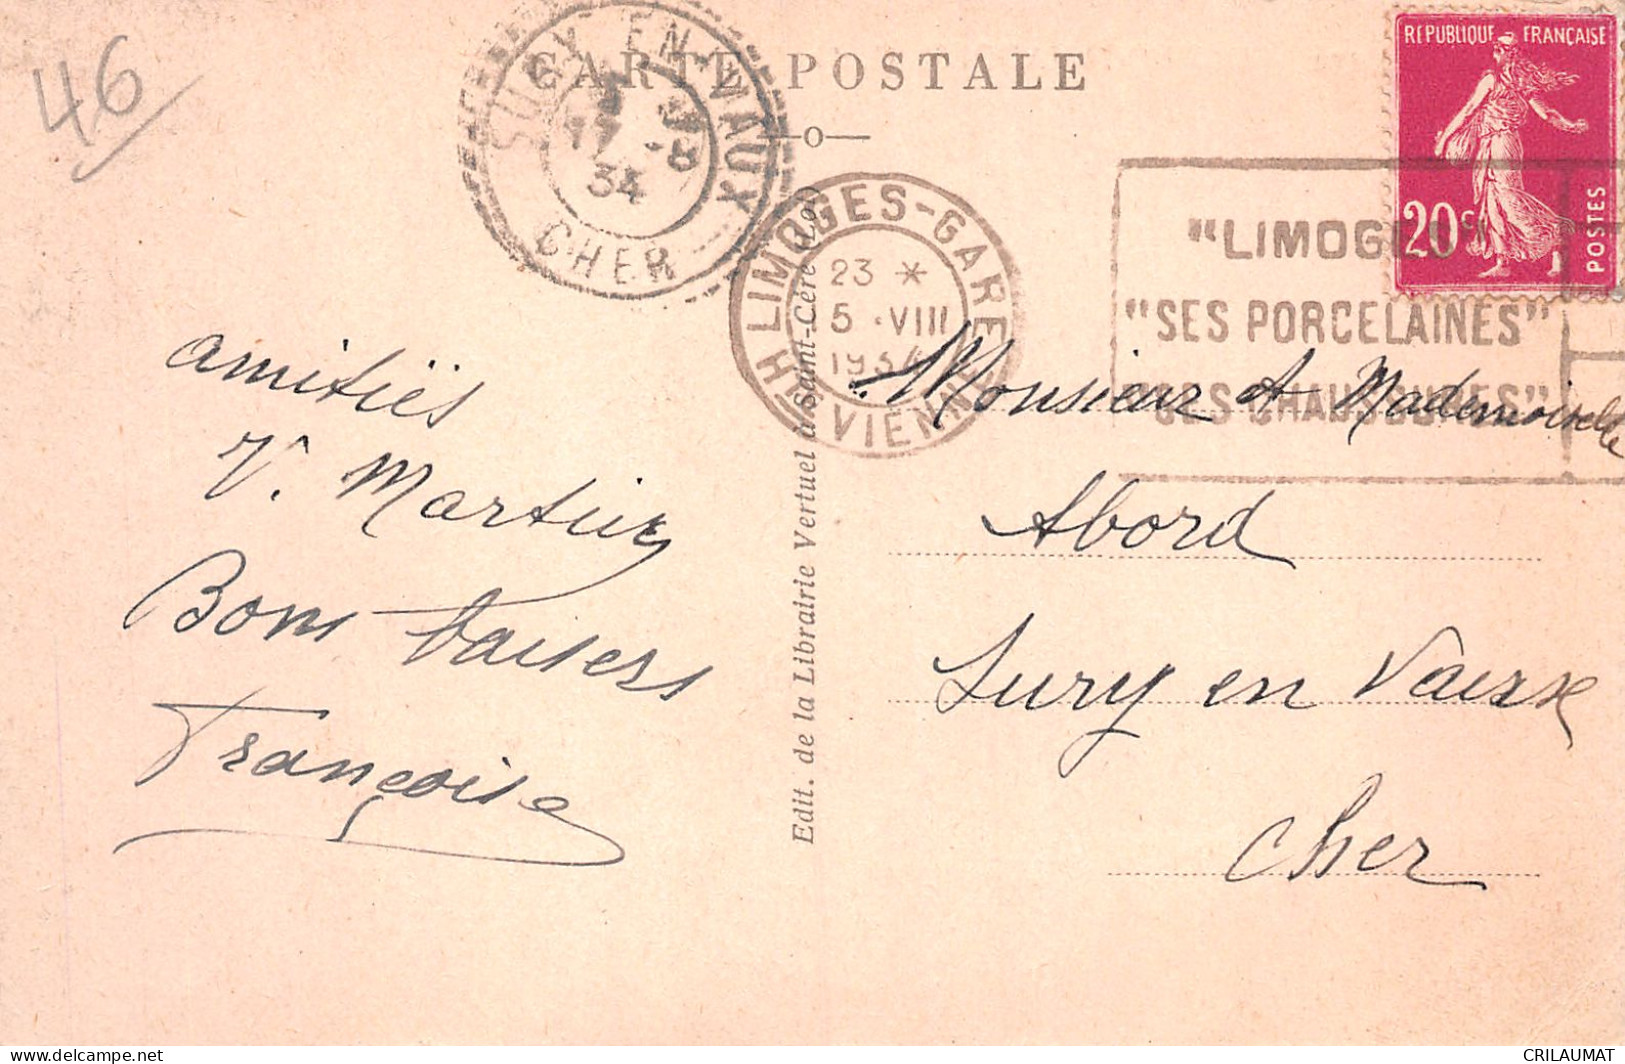 46
CARTE POSTALE
SURY EN-VAUX
34
CHER
LIMOGES-GARE
23 *
5 · VIII
1934
Hte VIENNE
REPUBLIQUE FRANÇAISE
20c
POSTES
"LIMOGES"
"SES PORCELAINES"
"SES CHAUSSURES"
amitiés
V. Martin
Bons baisers
Françoise
Edit. de la Librairie Vertuel à Saint-Céré (Lot)
Monsieur et Mademoiselle
Abord
Sury en Vaux
Cher
CRILAUMAT